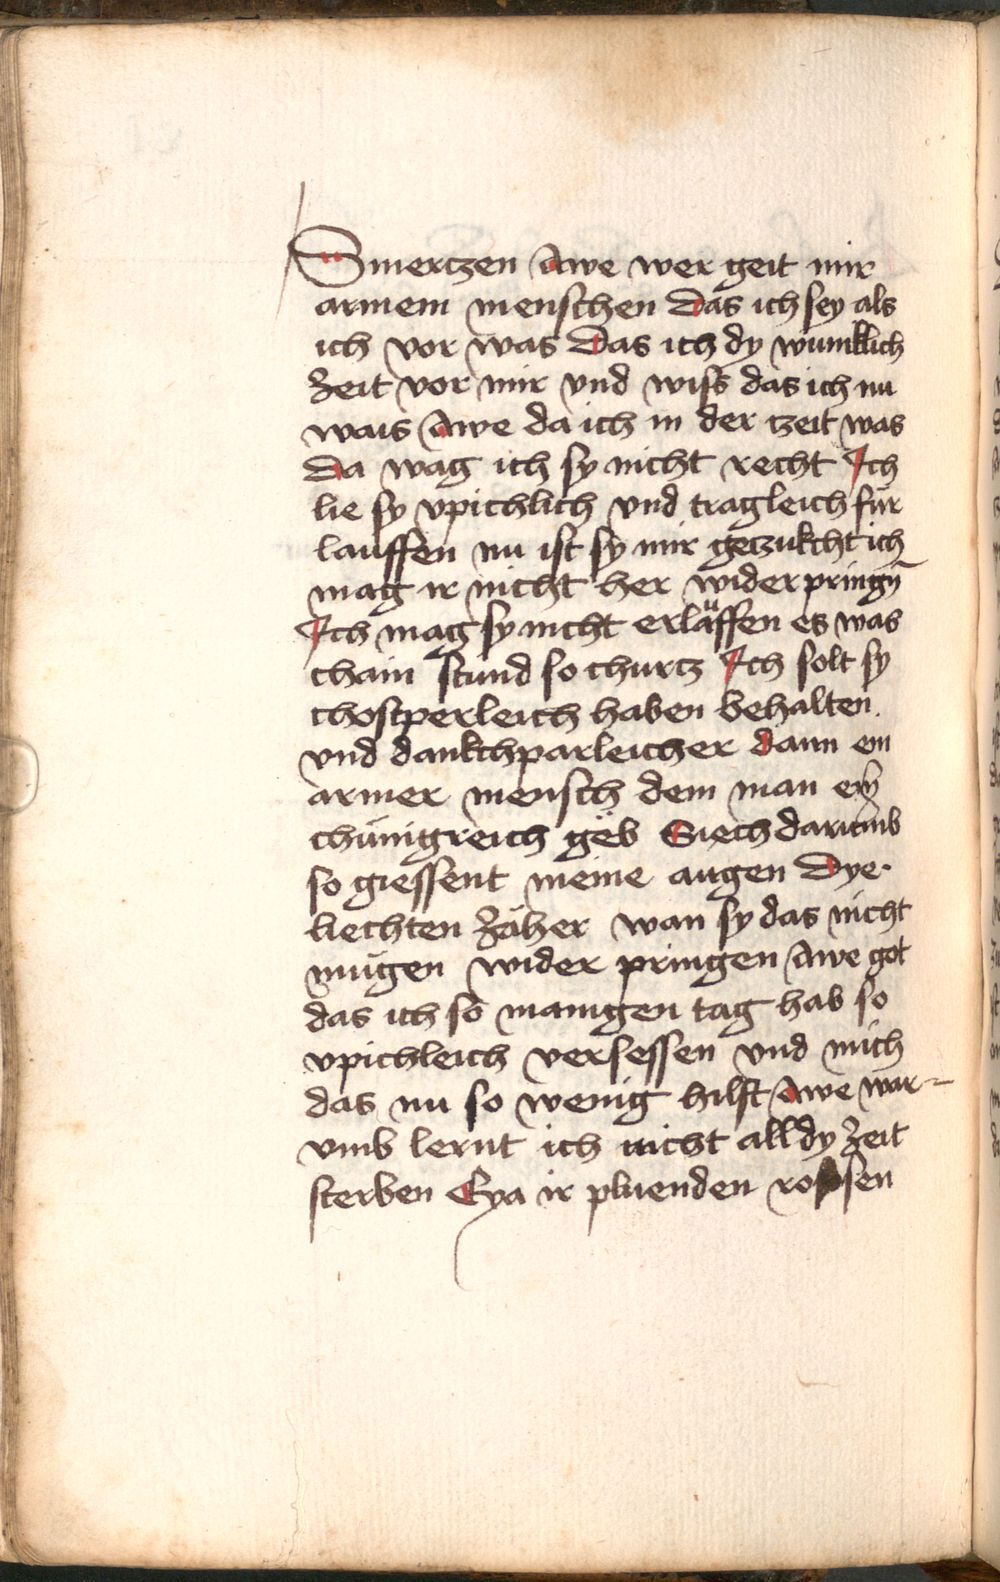 Smertzen Awe wer geit mir
armem menschen Das ich sey als
ich vor was Das ich dy wunklich
Zeit vor mir vnd wiss das ich nu
wais Awe da ich in der tzeit was
Da wag ich sy nicht recht Ich
lie sy vpichlich vnd tragleich für
lauffen nu ist sy mir getzukcht ich
mag ir nicht her wider pringn̄
Ich mag sy nicht erläffen es was
chain stund so churtz Ich solt sy
chostperleich haben behalten.
vnd dankchparleicher dann ein
armer mensch dem man eyn
chünigreich gëb Siech darumb
so giessent meine augen Dye
liechten Zäher wan sy das nicht
mügen wider pringen Awe got
das ich so manigen tag hab so
vpichleich versessen vnd mich
das nu so wenig hilft Awe war-
vmb lernt ich nicht all dy Zeit
sterben Eya ir pluenden rosen